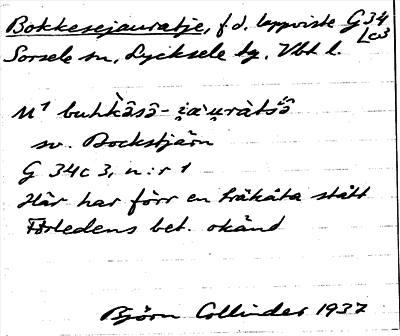 Bokkesejauratje, f.d. lappviste G 34
Lc3
Sorsele sn, Lycksele tg. Vbt l.
M¹ buhkàsə̂-i̯auràtsə̂
sv. Bockstjärn
G 34c 3, n:r 1
Här har förr en träkåta stått
Förledens bet. okänd
Björn Collinder 1937